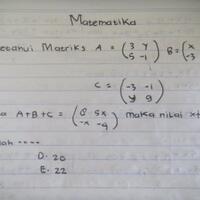 Matematika
etahui Matriks A = (3 y 5 -1) B = (x -3
C = (-3 -1 y 9)
a A+B+C = ( 5x -x -4) maka nilai x+
lah ....
D. 20
E. 22